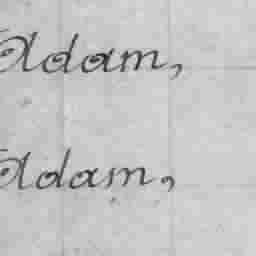 Adam,
Adam,